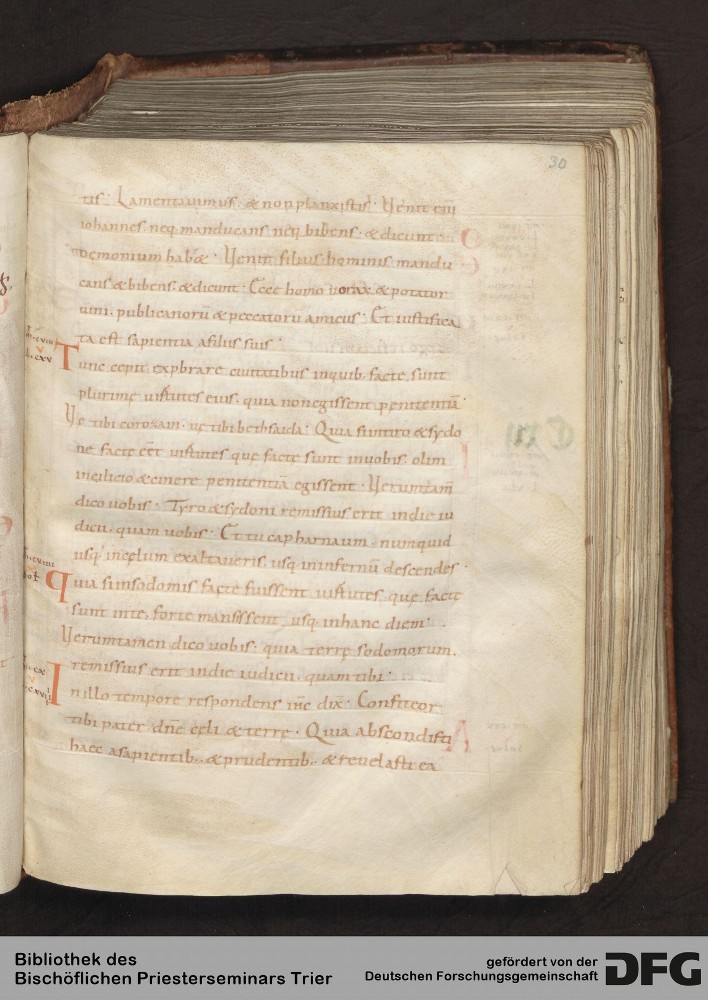 30
tis. Lamentauimus. & non planxistis. Uenit eni
iohannes neq. manducans neq. bibens. & dicunt
Demonium habet. Uenit filius hominis mandu
cans & bibens. & dicunt. Ecce homo uorax & potator
uini. publicanorū & peccatorū amicus. Et iustifica
ta est sapientia afiliis suis.
Tunc cepit exprbrare ciuitatibus inquib. facte sunt
plurime uirtutes eius. quia nonegissent penitentiā
Ue tibi corozain. uę tibi bethsaida. Quia siintyro & sydo
ne facte eēt uirtutes quę facte sunt inuobis. olim
incilicio & cinere penitentiā egissent. Uerumtam̄
dico uobis. Tyro & sydoni remissius erit indie iu
dicii. quam uobis. Et tu capharnaum. numquid
usq. incęlum exaltaueris. usq. ininfernū descendes.
quia siinsodomis factę fuissent uirtutes quę facte
sunt inte, forte mansissent usq. inhanc diem.
Uerumtamen dico uobis. quia terrę sodomorum.
remissius erit indie iudicii. quam tibi.
Inillo tempore respondens ihc dix. Confiteor
tibi pater dn̄e cęli & terrę. Quia abscondisti
haec asapientib. & prudentib. & reuelasti ea
Bibliothek des
Bischöflichen Priesterseminars Trier
gefördert von der
Deutschen Forschungsgemeinschaft
DFG